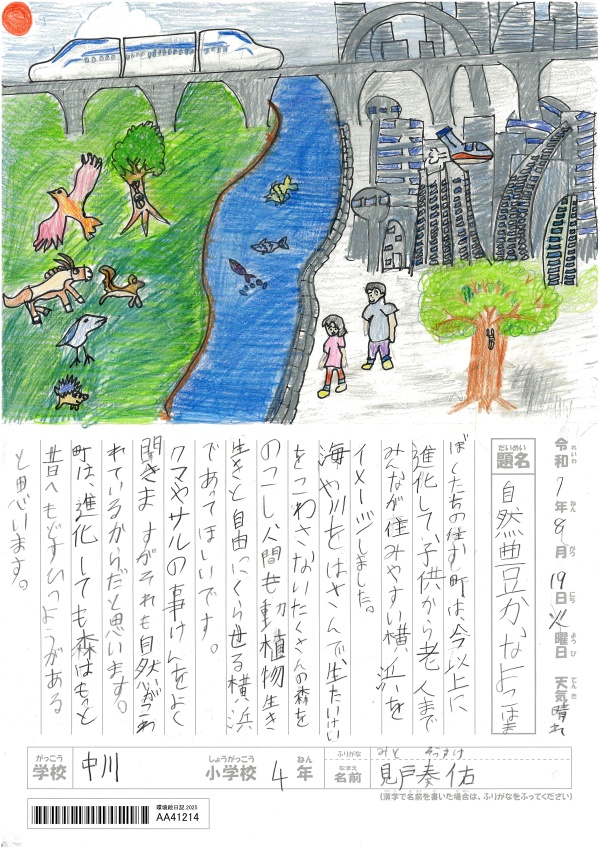 令和7年8月19日火曜日 天気晴れ
れいわ ねん がつ にち ようび てんき
だいめい
題名 自然豊かなよこはま
ぼくたちの住む町は、今以上に
進化して、子供から老人まで
みんなが住みやすい横浜を
イメージしました。
海や川をはさんで、生たいけい
をこわさないたくさんの森を
のこし人間も動植物生き
生きと自由にくらせる横浜
であってほしいです。
クマやサルの事けんをよく
聞きますがそれも自然がこわ
れているからだと思います。
町は、進化しても森はもっと
昔へもどすひつようがある
と思います。
がっこう しょうがっこう ねん ふりがな みと そうすけ
学校 中川 小学校 4年 なまえ 名前 見戸奏佑
(漢字で名前を書いた場合は、ふりがなをふってください)
環境絵日記 2025
AA41214